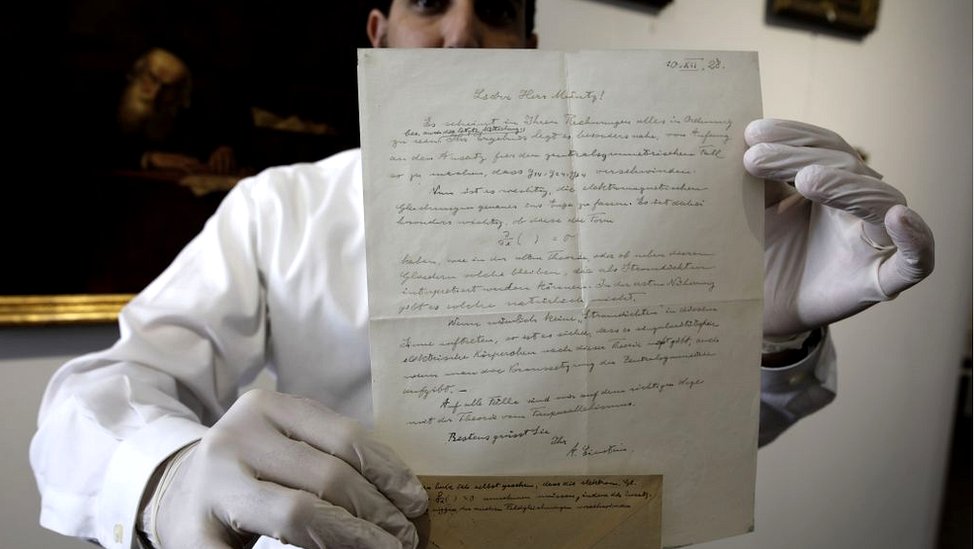 10. XII. 28.
Lieber Herr Müntz!
Es scheint in Ihren Rechnungen alles in Ordnung
bes. auch die letzte Mitteilung
zu sein. Ihr Ergebnis legt es besonders nahe, von Anfang
an den Ansatz für den zentralsymmetrischen Fall
so zu machen, dass g14, g24, g34 verschwinden.
Nun ist es wichtig, die elektromagnetischen
Gleichungen genauer ins Auge zu fassen. Es ist dabei
besonders wichtig, ob diese die Form
( ) = 0
haben, wie in der alten Theorie, oder ob neben diesen
Gliedern solche bleiben, die als Stromdichten
interpretiert werden können. In der ersten Näherung
gibt es solche natürlich nicht.
Wenn nämlich keine „Stromdichten" in diesem
Sinne auftreten, so ist es sicher, dass es singularitätsfreie
elektrische Körperchen nach dieser Theorie nicht gibt, auch
wenn man die Voraussetzung der Zentralsymmetrie
aufgibt. —
Auf alle Fälle sind wir auf dem richtigen Wege
mit der Theorie vom Fernparallelismus.
Bestens grüsst Sie
Ihr
A. Einstein.
habe ich selbst gesehen, dass die elektrom. Gl.
( ) = 0 annehmen müssen, indem die
den andern Feldgleichungen verschwinden